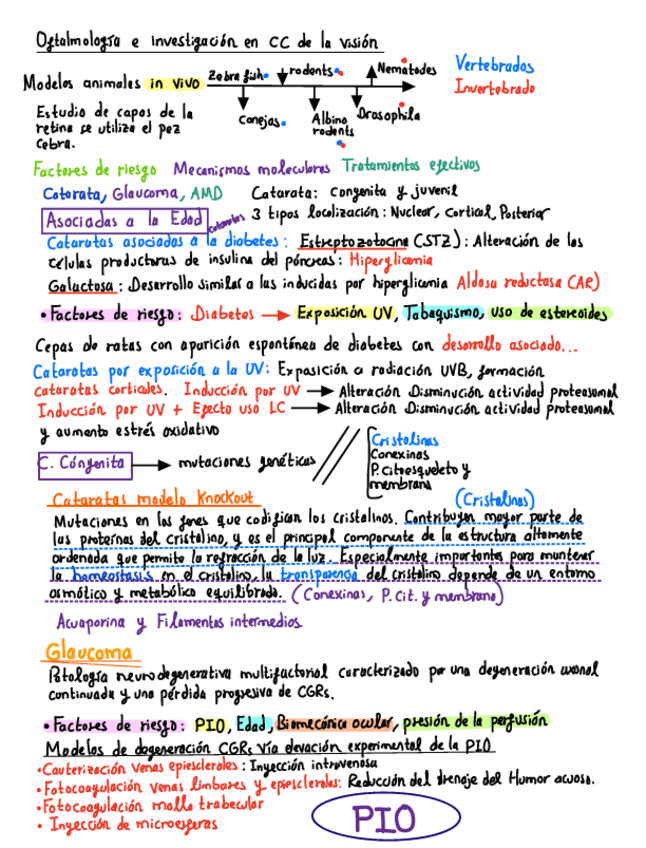 Oftalmología e investigación en CC de la visión
Modelos animales in vivo Zebra fish rodents Nematodes Vertebrados
Conejos Albino rodents Drosophila Invertebrado
Estudio de capos de la
retina se utiliza el pez
cebra.
Factores de riesgo Mecanismos moleculares Tratamientos efectivos
Catarata, Glaucoma, AMD Catarata: Congenita y juvenil
Asociadas a la Edad cataratas 3 tipos localización: Nuclear, Cortical, Posterior
Cataratas asociadas a la diabetes: Estreptozotocina (STZ): Alteración de las
células productoras de insulina del páncreas: Hiperglicemia
Galactosa: Desarrollo similar a las inducidas por hiperglicemia Aldosa reductasa (AR)
• Factores de riesgo: Diabetes → Exposición UV, Tabaquismo, uso de esteroides
Cepas de ratas con aparición espontánea de diabetes con desarrollo asociado...
Cataratas por exposición a la UV: Exposición a radiación UVB, formación
cataratas corticales. Inducción por UV → Alteración Disminución actividad proteasomal
Inducción por UV + Efecto uso LC → Alteración Disminución actividad proteasomal
y aumento estrés oxidativo
C. Cóngenita → mutaciones genéticas // [Cristalinas
Conexinas
P. citoesqueleto y
membrana
Cataratas modelo Knockout (Cristalinas)
Mutaciones en los genes que codifican los cristalinos. Contribuyen mayor parte de
las proteínas del cristalino, y es el principal componente de la estructura altamente
ordenada que permite la refracción de la luz. Especialmente importantes para mantener
la homeostasis en el cristalino, la transparencia del cristalino depende de un entorno
osmótico y metabólico equilibrado. (Conexinas, P. cit. y membrana)
Acuaporina y Filamentos intermedios
Glaucoma
Patología neurodegenerativa multifactorial caracterizado por una degeneración axonal
continuada y una pérdida progresiva de CGRs.
• Factores de riesgo: PIO, Edad, Biomecánica ocular, presión de la perfusión
Modelos de degeneración CGRs vía elevación experimental de la PIO
• Cauterización venas epiesclerales: Inyección intravenosa
• Fotocoagulación venas limbares y epiesclerales: Reducción del drenaje del Humor acuoso.
• Fotocoagulación malla trabecular
• Inyección de microesferas
PIO